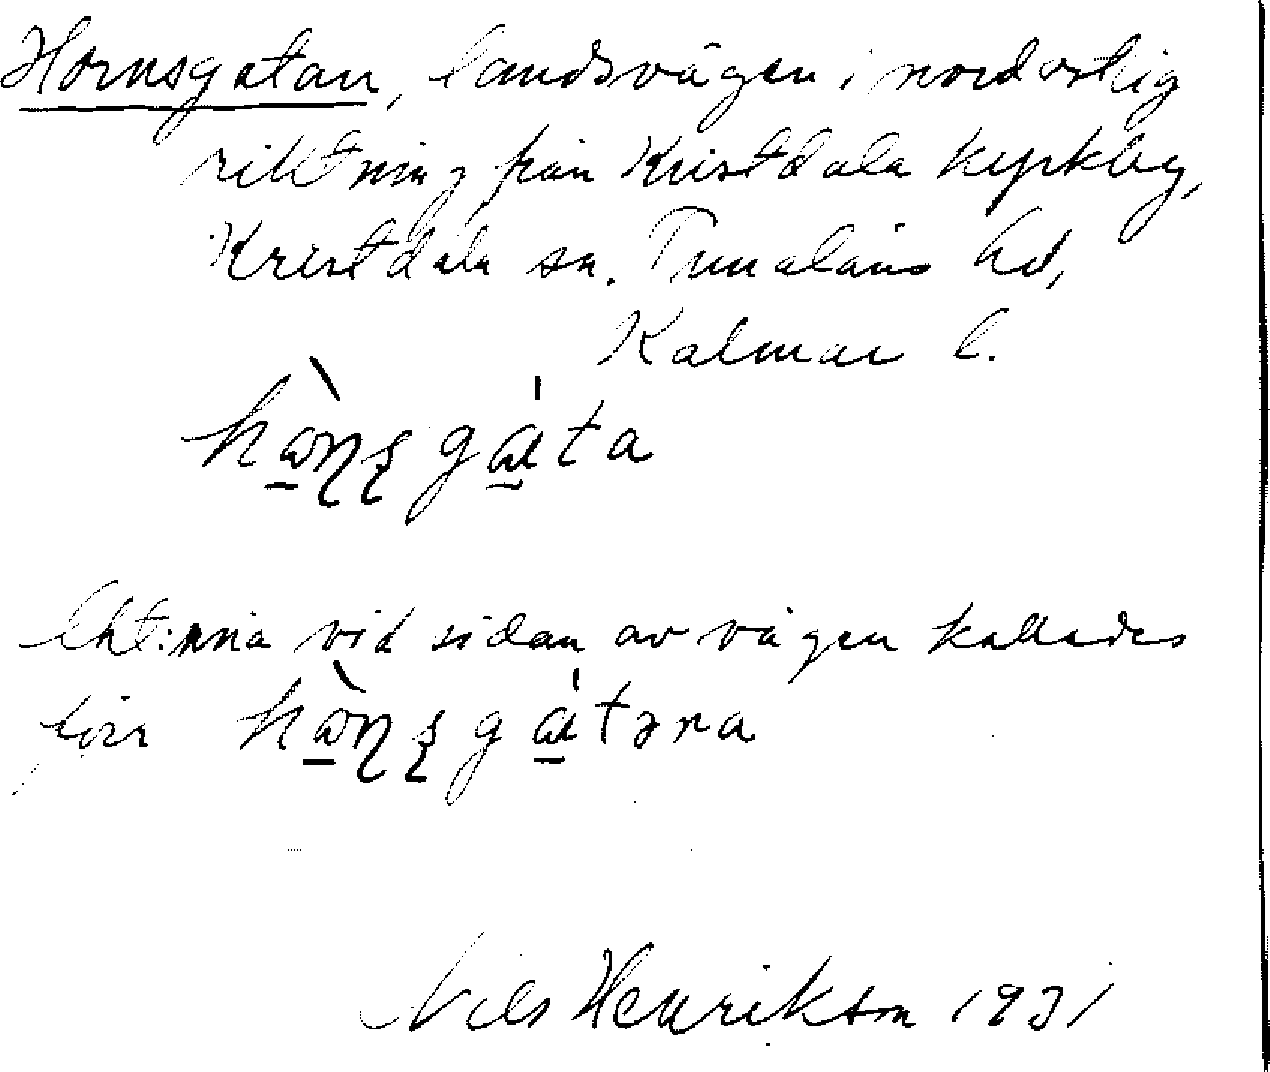 Hornsgatan, landsvägen i nordostlig
riktning från Kristdala kyrkby,
Kristdala sn. Tunaläns hd,
Kalmar l.
hɷ̠̀ɳʂgɑ̠̍ta
Lht:rna vid sidan av vägen kallades
förr hɷ̠̀ɳʂgɑ̠̍təra
Nils Henrikson 1931